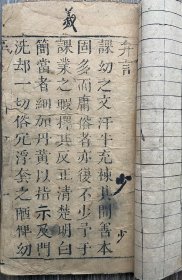 羲
弁言
課幼之文汗牛充棟其間善本
固多而庸俗者亦復不少予于
課業之暇擇其反正清楚明白
簡當者細加丹黃以指示及門
洗却一切俗冗浮套之陋俾幼
少
少